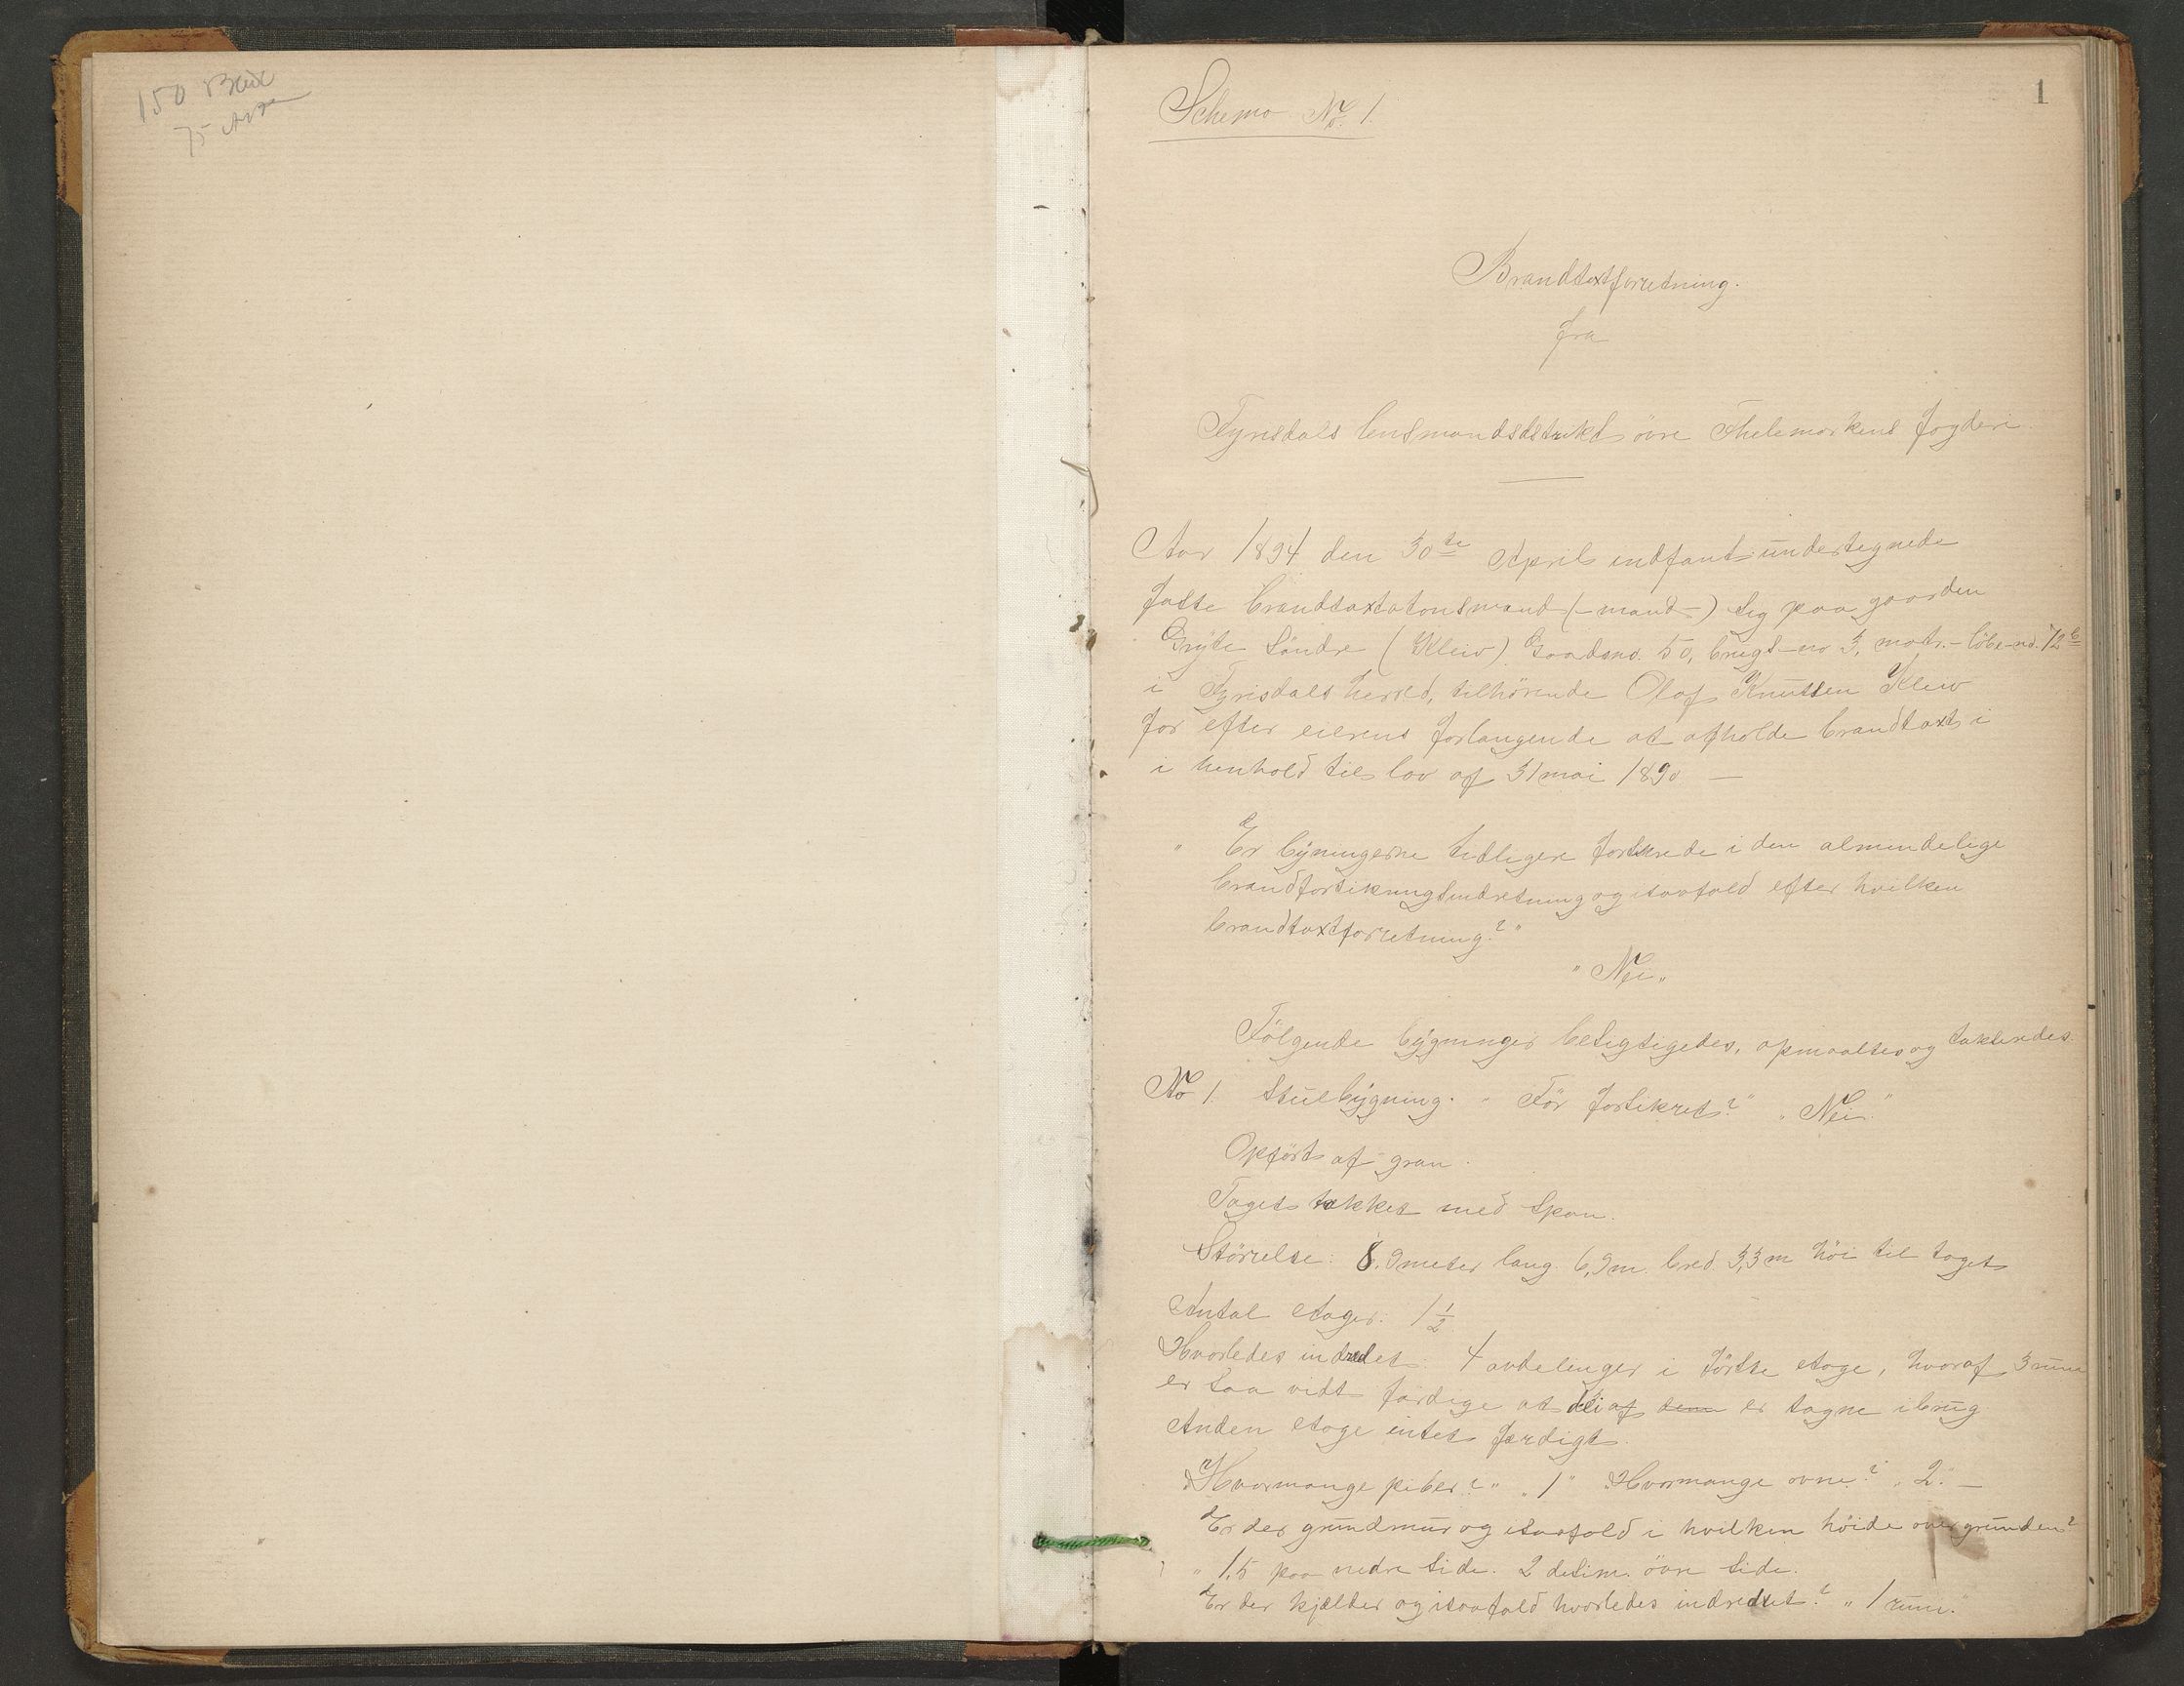 150
75
1
Schema No. 1.
Brandtaxtforretning.
fra
Fyrisdals lensmandsdstrikt övre Thelemarkens fogderi
Aar 1894 den 30te April indfant undertegnede
faste brandtaxtationsmand (-mænd-) sig paa gaarden
Gryte Söndre (Kleiv) Gaardsno. 50, brugs-no 3, matr.-löbe-no. 72b
i Fyrisdals herred, tilhörende Olaf Knutsen Kleiv
for efter eierens forlangende at afholde brandtaxt i
i henhold til lov af 31 mai 1890 —
" Er byningerne tidligere forsikrede i den almindelige
brandforsikringsindretning og isaafald efter hvilken
brandtaxtforretning?"
" Nei "
Følgende bygninger besigtigedes, opmaaltes og taksteredes.
No 1. Stuebygning. " Før forsikret?" " Nei."
Opført af gran.
Taget tækket med spon.
Störrelse: 8,9 meter lang 6,9 m. bred 3,3 m höi til taget
Antal etager: 1 1/2
Hvorledes indredet: 4 avdelinger i förste etage, hvoraf 3 rum
er saa vidt færdige at dei af dem er tagne i brug
Anden etage intet færdigt.
"Hvormange piber?" "1" "Hvormange ovne?" "2." —
"Er der grundmur og isaafald i hvilken höide over grunden?
" 1,5 paa nedre side. 2 desim. övre side.
"Er der kjælder og isaafald hvorledes indredet?" "1 rum."